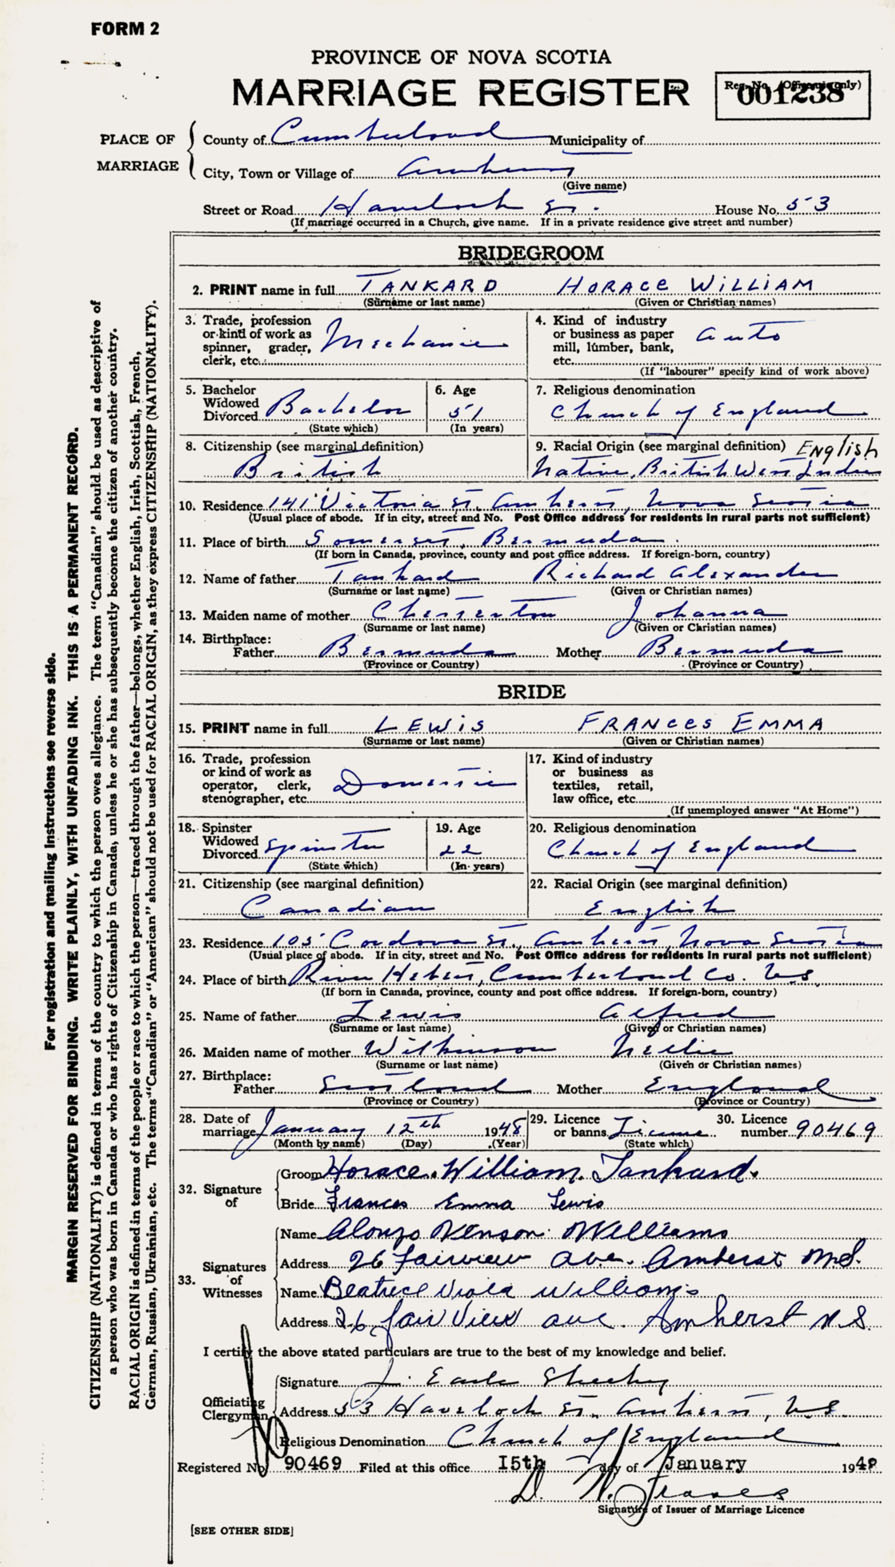 FORM 2
PROVINCE OF NOVA SCOTIA
MARRIAGE REGISTER
Reg. No. (Office use only)
001238
PLACE OF MARRIAGE
County of Cumberland Municipality of
City, Town or Village of Amherst
(Give name)
Street or Road Havelock St. House No. 53
(If marriage occurred in a Church, give name. If in a private residence give street and number)
BRIDEGROOM
2. PRINT name in full TANKARD HORACE WILLIAM
(Surname or last name) (Given or Christian names)
3. Trade, profession or kind of work as spinner, grader, clerk, etc. Mechanic
4. Kind of industry or business as paper mill, lumber, bank, etc. Auto
(If "labourer" specify kind of work above)
5. Bachelor Widowed Divorced Bachelor
(State which)
6. Age 51
(In years)
7. Religious denomination
Church of England
8. Citizenship (see marginal definition)
British
9. Racial Origin (see marginal definition) ENglish
Native, British West Indies
10. Residence 141 Victoria St, Amherst, Nova Scotia
(Usual place of abode. If in city, street and No. Post Office address for residents in rural parts not sufficient)
11. Place of birth Somerset, Bermuda.
(If born in Canada, province, county and post office address. If foreign-born, country)
12. Name of father Tankard Richard Alexander
(Surname or last name) (Given or Christian names)
13. Maiden name of mother Johanna
(Surname or last name) (Given or Christian names)
14. Birthplace:
Father Bermuda Mother Bermuda
(Province or Country) (Province or Country)
BRIDE
15. PRINT name in full LEWIS FRANCES EMMA
(Surname or last name) (Given or Christian names)
16. Trade, profession or kind of work as operator, clerk, stenographer, etc. Domestic
17. Kind of industry or business as textiles, retail, law office, etc.
(If unemployed answer "At Home")
18. Spinster Widowed Divorced Spinster
(State which)
19. Age 22
(In years)
20. Religious denomination
Church of England
21. Citizenship (see marginal definition)
Canadian
22. Racial Origin (see marginal definition)
English
23. Residence 105 Cordova St., Amherst, Nova Scotia
(Usual place of abode. If in city, street and No. Post Office address for residents in rural parts not sufficient)
24. Place of birth River Hebert, Cumberland Co. N.S
(If born in Canada, province, county and post office address. If foreign-born, country)
25. Name of father Lewis Alfred
(Surname or last name) (Given or Christian names)
26. Maiden name of mother Wilkinson Nellie
(Surname or last name) (Given or Christian names)
27. Birthplace:
Father Scotland Mother England
(Province or Country) (Province or Country)
28. Date of marriage January 12th 1948
(Month by name) (Day) (Year)
29. Licence or banns License
(State which)
30. Licence number 90469
32. Signature of
Groom Horace William Tankard.
Bride Frances Emma Lewis
33. Signatures of Witnesses
Name Alonzo Williams
Address 26 Fairview ave. Amherst N.S.
Name Beatrice Viola Williams
Address 26 Fair View ave. Amherst N.S.
I certify the above stated particulars are true to the best of my knowledge and belief.
Officiating Clergyman
Signature J. Earle
Address 53 Havelock St., Amherst, N.S.
Religious Denomination Church of England
Registered No. 90469 Filed at this office 15th day of January 1948
D. N. Fraser
Signature of Issuer of Marriage Licence
[SEE OTHER SIDE]
For registration and mailing instructions see reverse side.
MARGIN RESERVED FOR BINDING. WRITE PLAINLY, WITH UNFADING INK. THIS IS A PERMANENT RECORD.
CITIZENSHIP (NATIONALITY) is defined in terms of the country to which the person owes allegiance. The term "Canadian" should be used as descriptive of
a person who was born in Canada or who has rights of Citizenship in Canada, unless he or she has subsequently become the citizen of another country.
RACIAL ORIGIN is defined in terms of the people or race to which the person—traced through the father—belongs, whether English, Irish, Scottish, French,
German, Russian, Ukrainian, etc. The terms "Canadian" or "American" should not be used for RACIAL ORIGIN, as they express CITIZENSHIP (NATIONALITY).